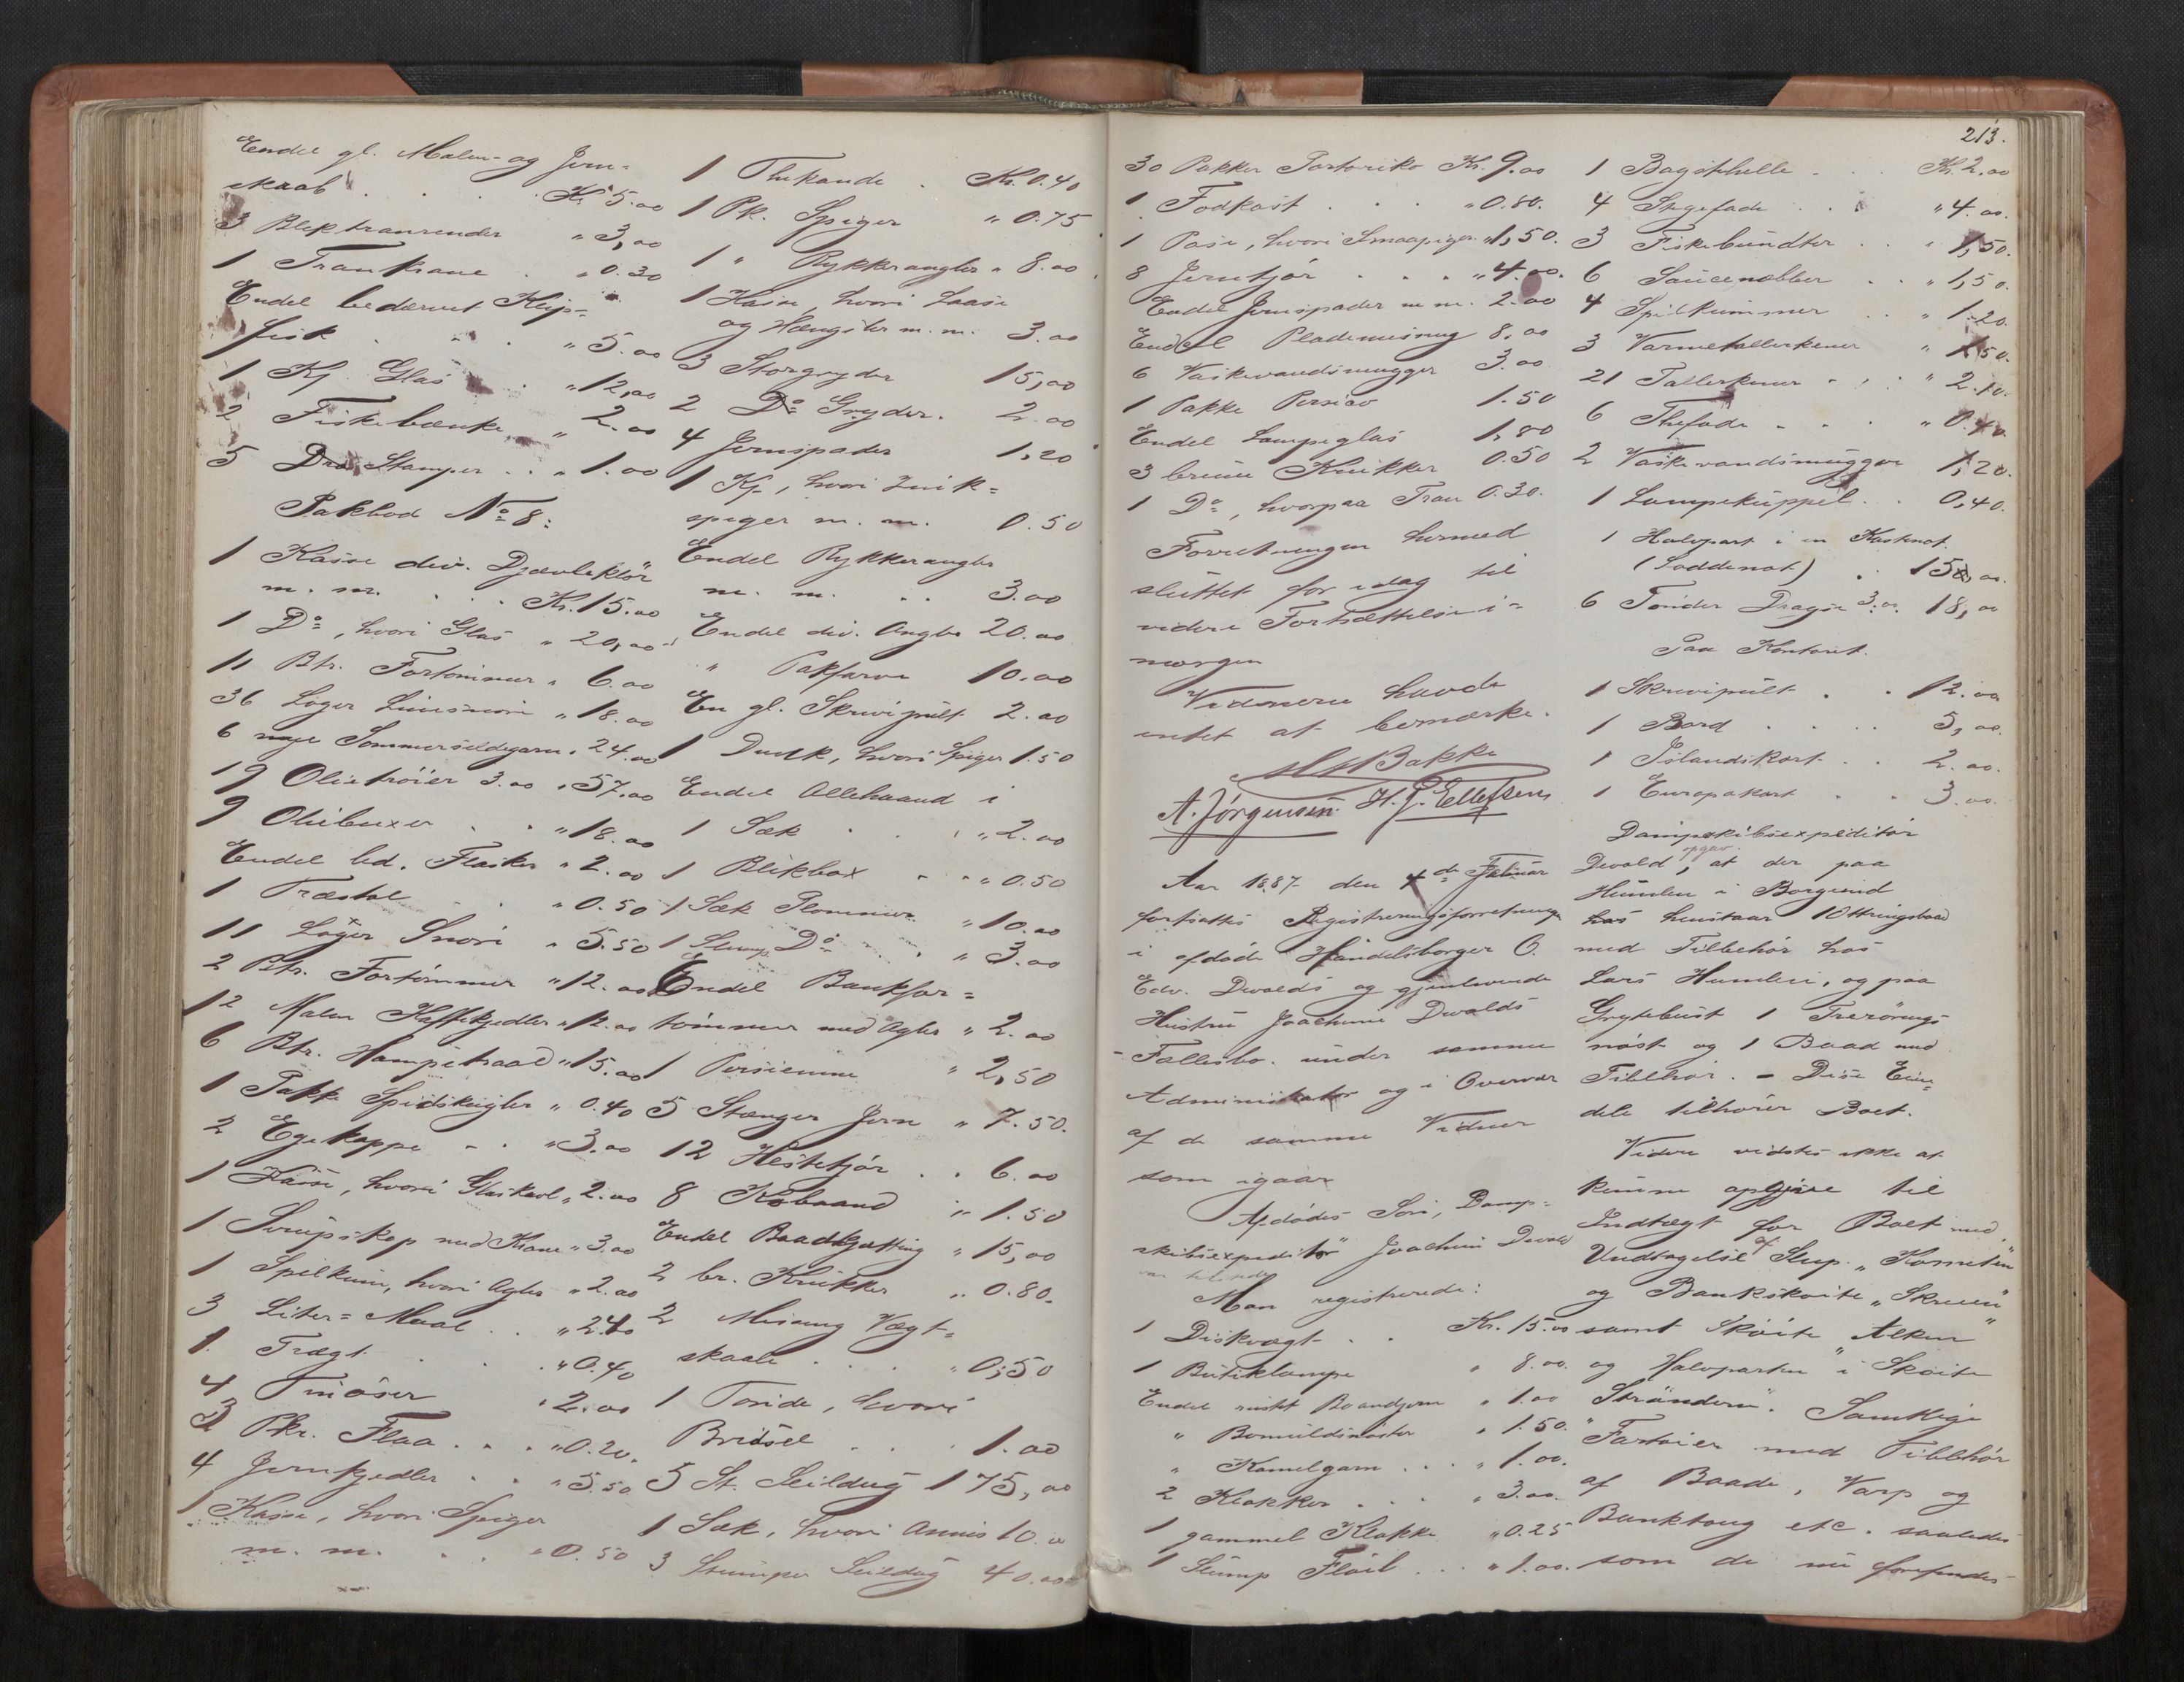 Endel gl. Malm- og Jern-
skab . . . Kr. 5.00
3 Bliktranrender " 3,00
1 Trankrane . " 0.30
Endel bedærvet Klip-
fisk . . . " 5.00
1 Kj. Glas . " 12,00
2 Fiskebænke " 2.00
5 Stamper . . " 1.00
Pakbod No 8:
1 Kasse div.
m. m. . . . Kr. 15.00
1 Do, hvori Glas " 20,00
11 Btr. Fortommer " 6.00
36 Løger Linesnøre " 18.00
6 nye Sommersildegarn . 24.00
19 Olietrøier 3.00 . 57.00
9 Oliebuxer . . " 18.00
Endel led. Flasker " 2.00
1 Træstol . . " 0.50
11 Løger Snøre . 5.50
2 Btr. Fortømmer " 12.00
12 Malm Kaffekjedler " 12.00
6 Btr. Hampetraad " 15.00
1 Pakke Spidskugler " 0.40
2 Egekoppe - . " 3.00
1 Kasse, hvori Glaskavl " 2.00
1 Sirupskop med Krane " 3.00
1 Spilkum, hvori Agler " 2.00
3 Liter-Maal . . " 2.40
1 Tragt . . . " 0.40
4 . 2.00
3 Pkr. Flaa . . . " 0.20.
4 Jernkjedler . . " 5.50
1 Kasse, hvori Spiger
m. m. . . . " 0.50
1 Thekande . Kr. 0.40
1 Pk. Spiger " 0.75
1 " Rykkerangler " 8.00
1 Kasse, hvori Laase
og Hængsler m. m. 3.00
3 Storgryder 15,00
2 Do Gryder. 2.00
4 Jernspader 1,20
1 Kj., hvori Zink-
spiger m. m. 0.50
Endel Rykkerangler
m. m. . . 3.00
Endel div. Angler 20.00
" Pakfarve 10.00
En gl. Skrivepult 2.00
1 Dunk, hvori Spiger 1.50
Endel Allehaand i
1 Sæk . . . " 2.00
1 Blikbox . . " 0.50
1 Sæk Plommer " 10.00
1 Slump Do . . " 3.00
Endel Bankfor-
tømmer med Agler " 2.00
1 Persienne " 2,50
5 Stænger Jern " 7.50.
12 Hestetjør . . 6.00
8 Kobaand " 1.50
Endel Baadkjætting " 15,00
2 br. Krukker " 0.80.
2 Missing Vægt-
skaale . . . " 0,50
1 Tønde, hvori
. . . 1.00
5 St. Seildug 175,00
1 Sæk, hvori Annis 10.00
3 Stumper Seildug 40.00
213.
30 Pakker Portoriko Kr. 9.00
1 Fodkost . . . " 0.80.
1 Pose, hvori Smaapiger " 1,50.
8 Jerntjør . . . " 4.00.
Endel Jernspader m m. 2.00
Endel Plademissing 8,00
6 Vaskevandsmugger 3.00
1 Pakke Persico 1.50
Endel Lampeglas 1,80
3 brune Krukker 0.50
1 Do, hvorpaa Tran 0.30.
Forretningen hermed
sluttet for idag til
videre Fortsættelse i-
morgen
Vidnerne havde
intet at bemærke.
Bakke
A. Jørgensen. H. J. Ellefsen
Aar 1887 den 4de Februar
fortsattes Registreringsforretningen
i afdøde Handelsborger O.
Edv. Devolds og gjenlevende
Hustru Joachime Devolds
Fællesbo. under samme
Administrator og i Overvær
af de samme Vidner
som igaar
Afdødes Søn, Damp-
skibsexpeditør Joachim Devold
var tilstede
Man registrerede:
1 Diskvægt . . Kr. 15.00
1 Butiklampe " 8.00.
Endel rustet Baandjern " 1.00
" Bomuldsnøster " 1.50
" Kamelgarn . . . " 1.00.
2 Klokker . . . " 3.00.
1 gammel Klokke " 0.25
1 Slump Fløil . . . " 1.00.
1 Bagstehelle . . . Kr. 2,00
4 Stegefade . . . " 4.00.
3 Fiskebundter . . . " 1,50.
6 Saucenebber . . " 1,50.
4 Spilkummer . . " 1.20.
3 Varmetallerkener " 1.50.
21 Tallerkener - . . " 2.10.
6 Thefade - . . . " 0.40.
2 Vaskevandsmugger 1,20.
1 Lampekuppel . . 0,40.
1 Halvpart i en Kastenot.
(Loddenot) . 150,00.
6 Tønder Dragse 3.00. 18,00
Paa Kontoret.
1 Skrivepult . . 12.00
1 Bord . . . . 5,00.
1 Islandskart . . 2.00.
1 Europakart . . 3.00.
Dampskibsexpeditør
Devold opgav, at der paa
Humlen i Borgund
hos henstaar 1 Ottringsbaad
med Tilbehør hos
Lars Humlen, og paa
Grytebust 1 Trerørings
nøst og 1 Baad med
Tilbehør. - Disse Eien-
dele tilhører Boet.
Videre vidstes ikke at
kunne opgjøre til
Indtægt for Boet med
Undtagelse af Slup. "Kometen"
og Bankskøite "Skreien"
samt Skøite "Alken"
og Halvparten i Skøite
"Stranderen". Samtlige
Fartøier med Tilbehør
af Baade, Varp og
Banktoug etc. saaledes
som de nu forefindes